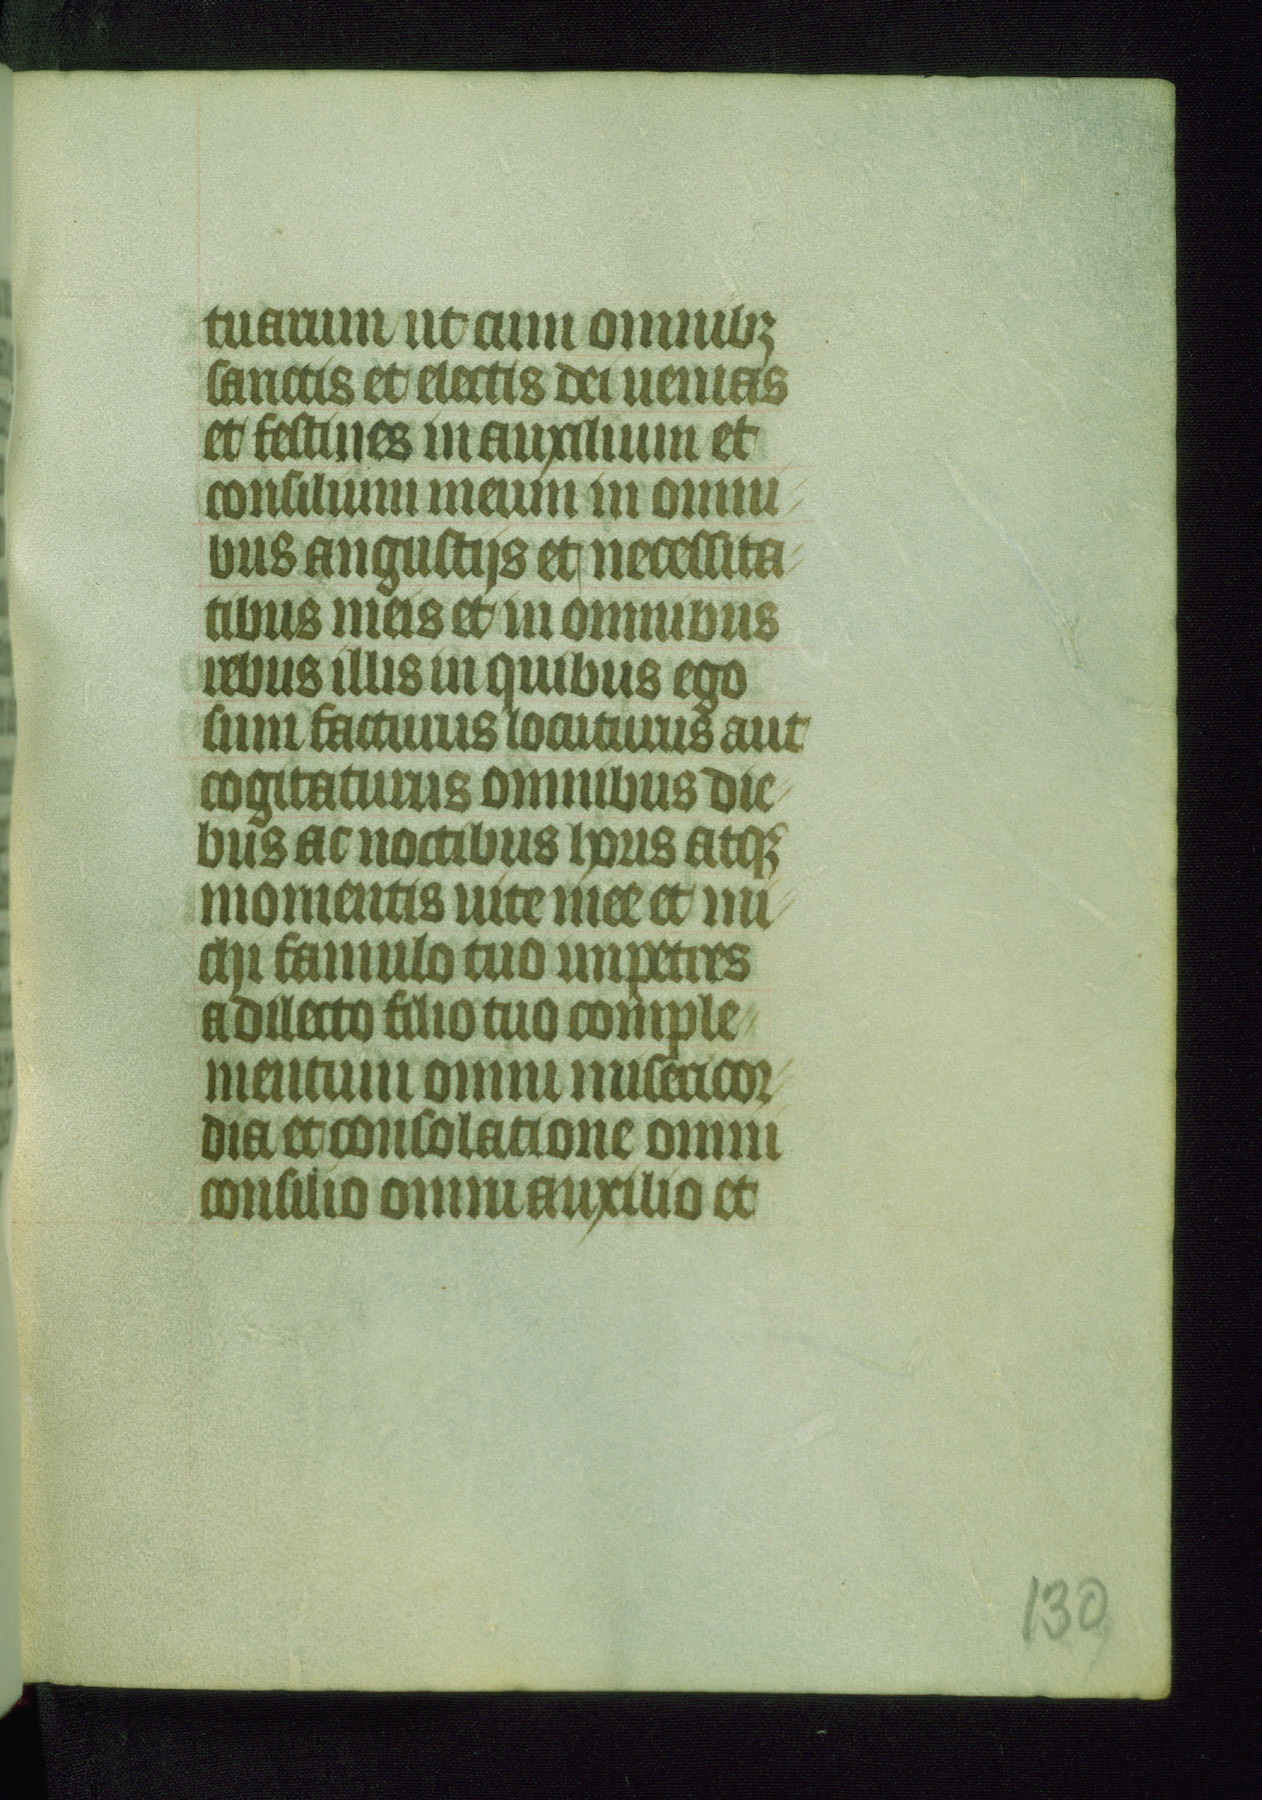 tuarum ut cum omnibꝫ
sanctis et electis dei uenias
et festines in auxilium et
consilium meum in omni
bus angustijs et necessita
tibus meis et in omnibus
rebus illis in quibus ego
sum facturus locuturus aut
cogitaturus omnibus die
bus ac noctibus horis atqꝫ
momentis uite mee et mi
chi famulo tuo impetres
a dilecto filio tuo comple
mentum omni misericor
dia et consolatione omni
consilio omni auxilio et
130